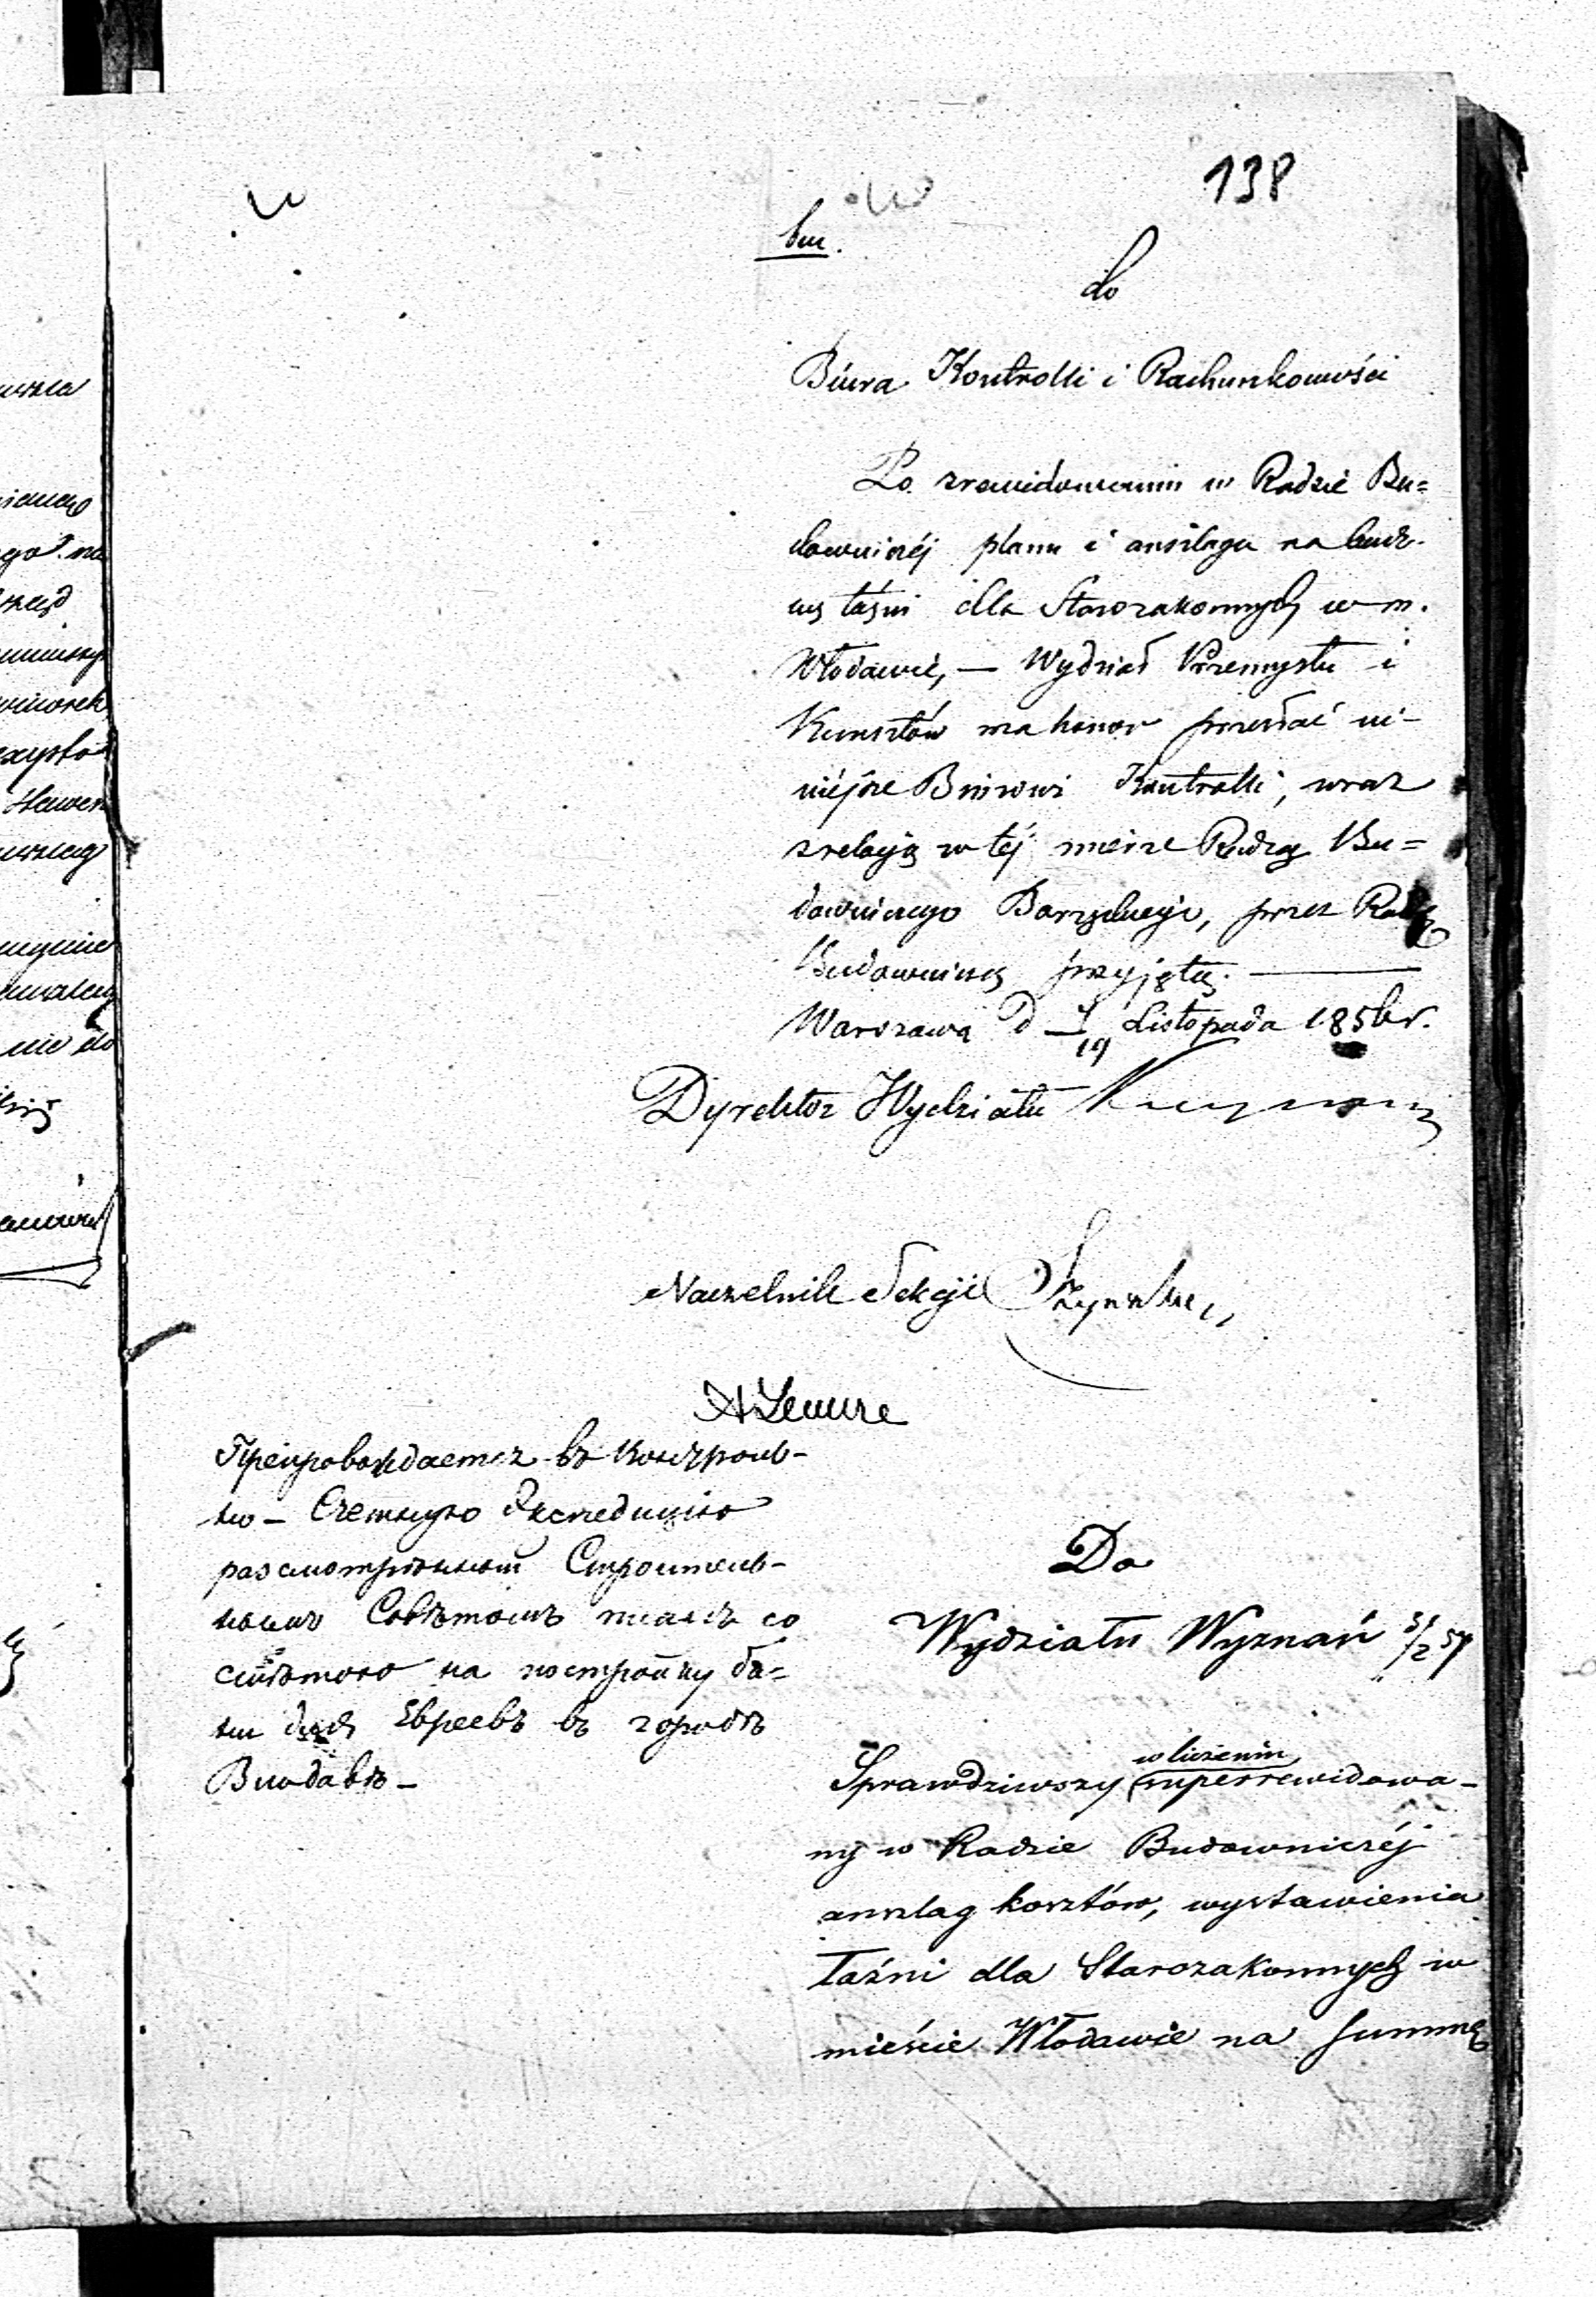 138
bm.
do
Biura Kontrolli i Rachunkowości
Po zrewidowaniu w Radzie Bu=
downiczéj planu i anszlagu na budo-
wę łaźni dla Starozakonnych w m.
Włodawie, — Wydział Przemysłu i
Kunsztów ma honor przesłać ni-
niéjsze Biurowi Kontrolli, wraz
z relacją w téj mierze Radzcy Bu=
downiczego przez Radę
Budowniczą przyjętą. —
Warszawa D 7/19 Listopada 1856 r.
Dyrektor Wydziału
Naczelnik Sekcji
Препровождается въ Контроль-
но – Счетную Экспедицію
разсмотрѣнный Строитель-
нымъ Совѣтомъ планъ со
смѣтою на постройку ба=
ни для Евреевъ въ городѣ
Влодавѣ –
Do
Wydziału Wyznań
w liczeniu
Sprawdziwszy superrewidowa-
ny w Radzie Budowniczéj
anszlag kosztów, wystawienia
łaźni dla Starozakonnych w
mieście Włodawie na summę